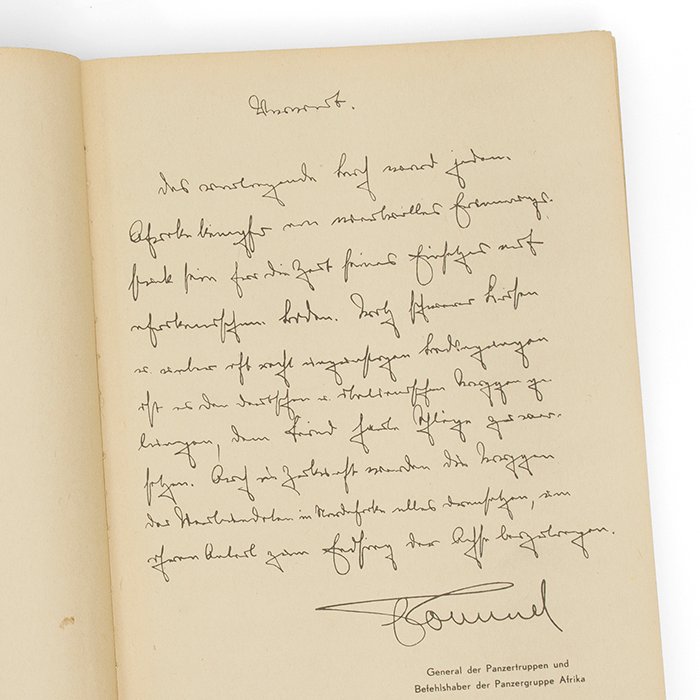 Vorwort.
Das vorliegende Buch wird jedem
Afrikakämpfer ein wertvolles Erinnerungs-
stück sein für die Zeit seines Einsatzes auf
afrikanischem Boden. Trotz schwerer Krisen
u. unter oft recht ungünstigen Bedingungen
ist es den deutschen u. italienischen Truppen ge-
lungen, dem Feind harte Schläge zu ver-
setzen. Auch in Zukunft werden die Truppen
der Verbündeten in Nordafrika alles daransetzen, um
ihren Anteil zum Endsieg der Achse beizutragen.
Rommel
General der Panzertruppen und
Befehlshaber der Panzergruppe Afrika